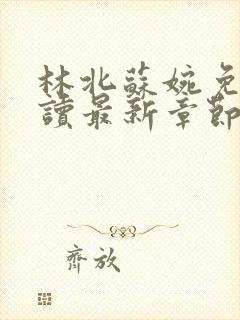 林北蘇婉免
讀最新章節
齊放